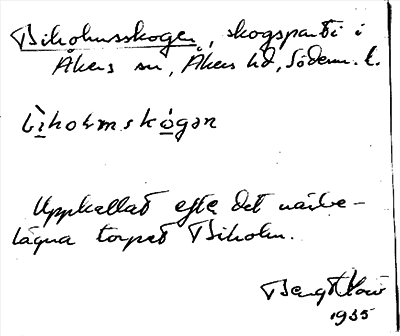 Biholmsskogen, skogsparti i
Åkers sn, Åkers hd, Söderm. l.
bìholmskògən
Uppkallat efter det närbe-
lägna torpet Biholm.
Bengt
1935